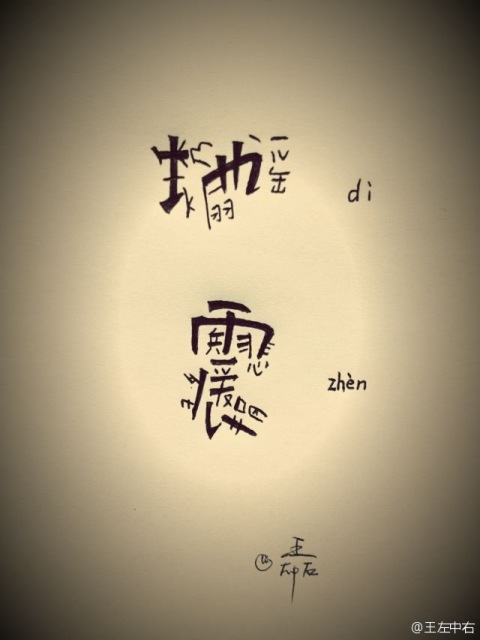 地 dì
震 zhèn
王左中右
@王左中右